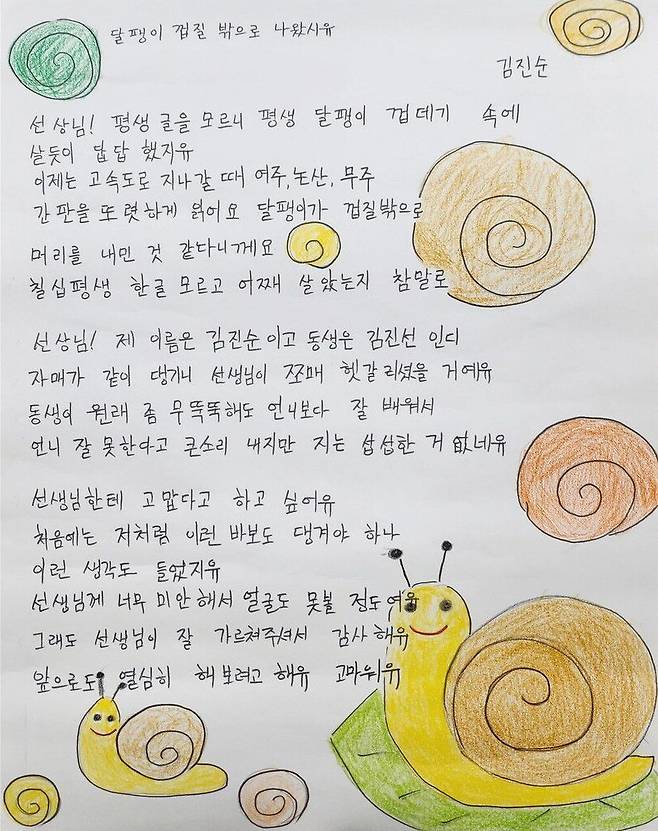 달팽이 껍질 밖으로 나왔시유
김진순
선상님! 평생 글을 모르니 평생 달팽이 껍데기 속에
살듯이 답답 했지유
이제는 고속도로 지나갈 때 여주,논산, 무주
간판을 또렷하게 읽어요 달팽이가 껍질밖으로
머리를 내민 것 같다니께요
칠십평생 한글 모르고 어째 살았는지 참말로
선상님! 제 이름은 김진순이고 동생은 김진선 인디
자매가 같이 댕기니 선생님이 쪼매 헷갈리셨을 거예유
동생이 원래 좀 무뚝뚝해도 언니보다 잘 배워서
언니 잘 못한다고 큰소리 내지만 지는 섭섭한 거 없네유
선생님한테 고맙다고 하고 싶어유
처음에는 저처럼 이런 바보도 댕겨야 하나
이런 생각도 들었지유
선생님께 너무 미안해서 얼굴도 못볼 정도여유
그래도 선생님이 잘 가르쳐주셔서 감사해유
앞으로도 열심히 해보려고 해유 고마워유